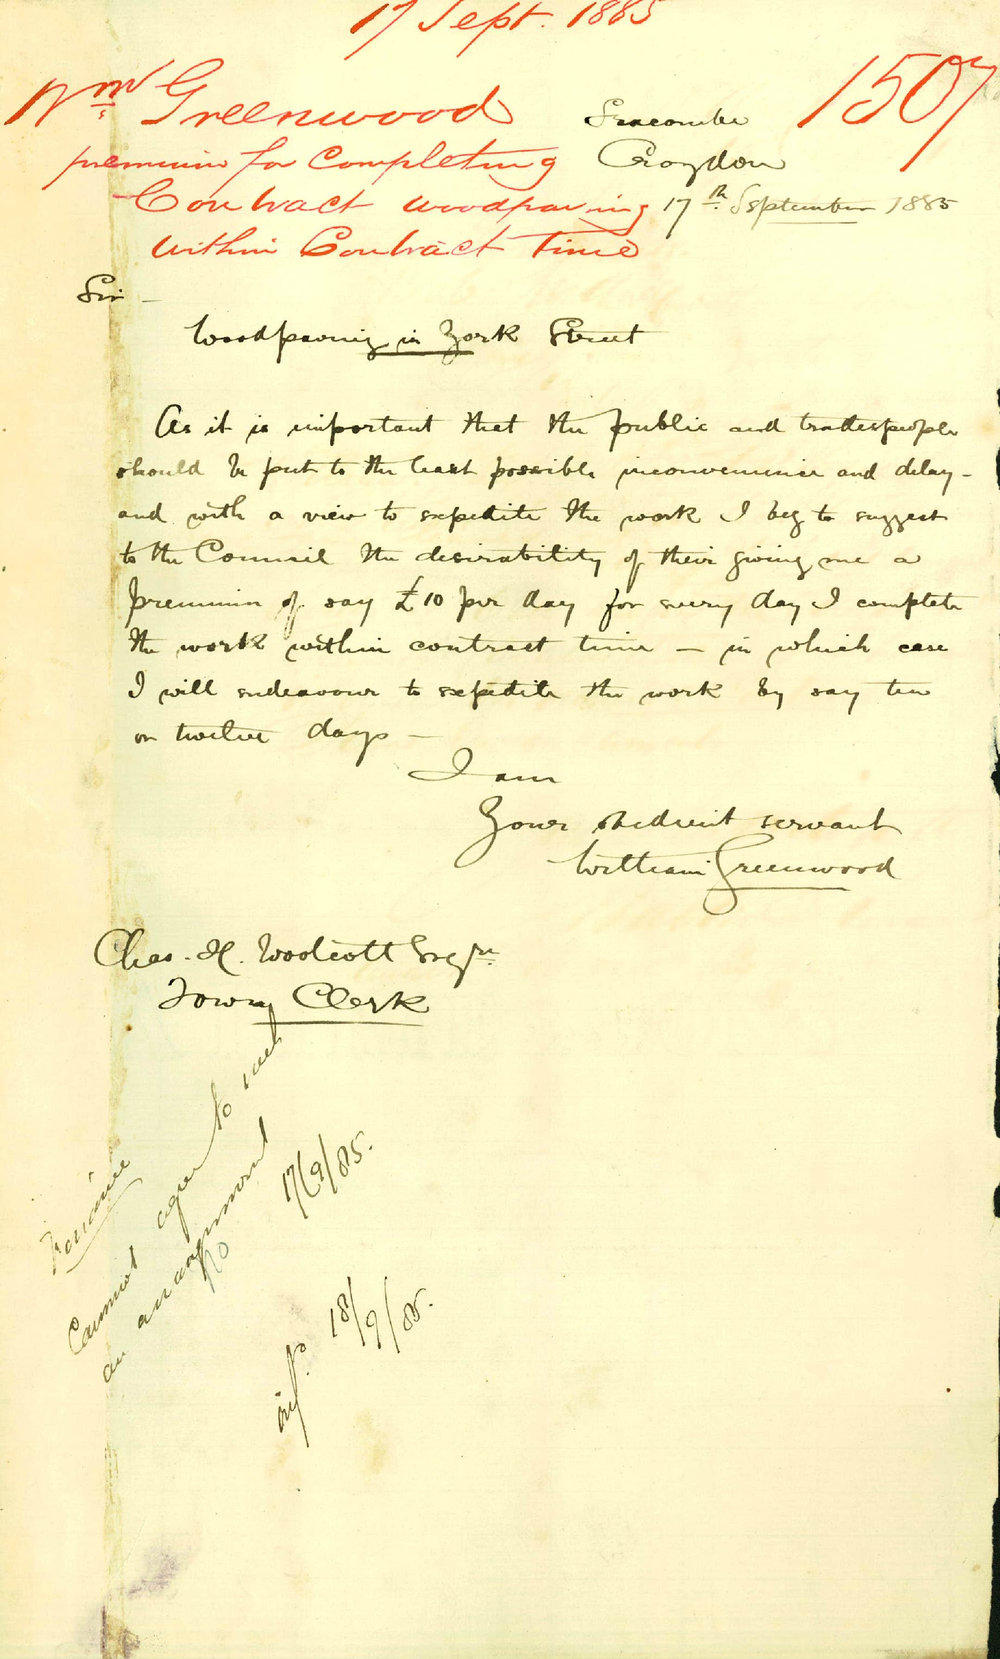 17 Sept. 1885
1507
Wm Greenwood
premium for Completing
Contract woodpaving
within Contract Time
Seacombe
Croydon
17th September 1885
Sir -
Woodpaving in York Street
As it is important that the public and tradespeople
should be put to the least possible inconvenience and delay -
and with a view to expedite the work I beg to suggest
to the Council the desirability of their giving me a
premium of say £10 per day for every day I complete
the work within contract time - in which case
I will endeavour to expedite the work by say ten
or twelve days -
I am
Your obedient servant
William Greenwood
Chas. H. Woolcott Esqre
Town Clerk
Finance
Cannot agree to such
an arrangement
17/9/85.
infd 18/9/85.